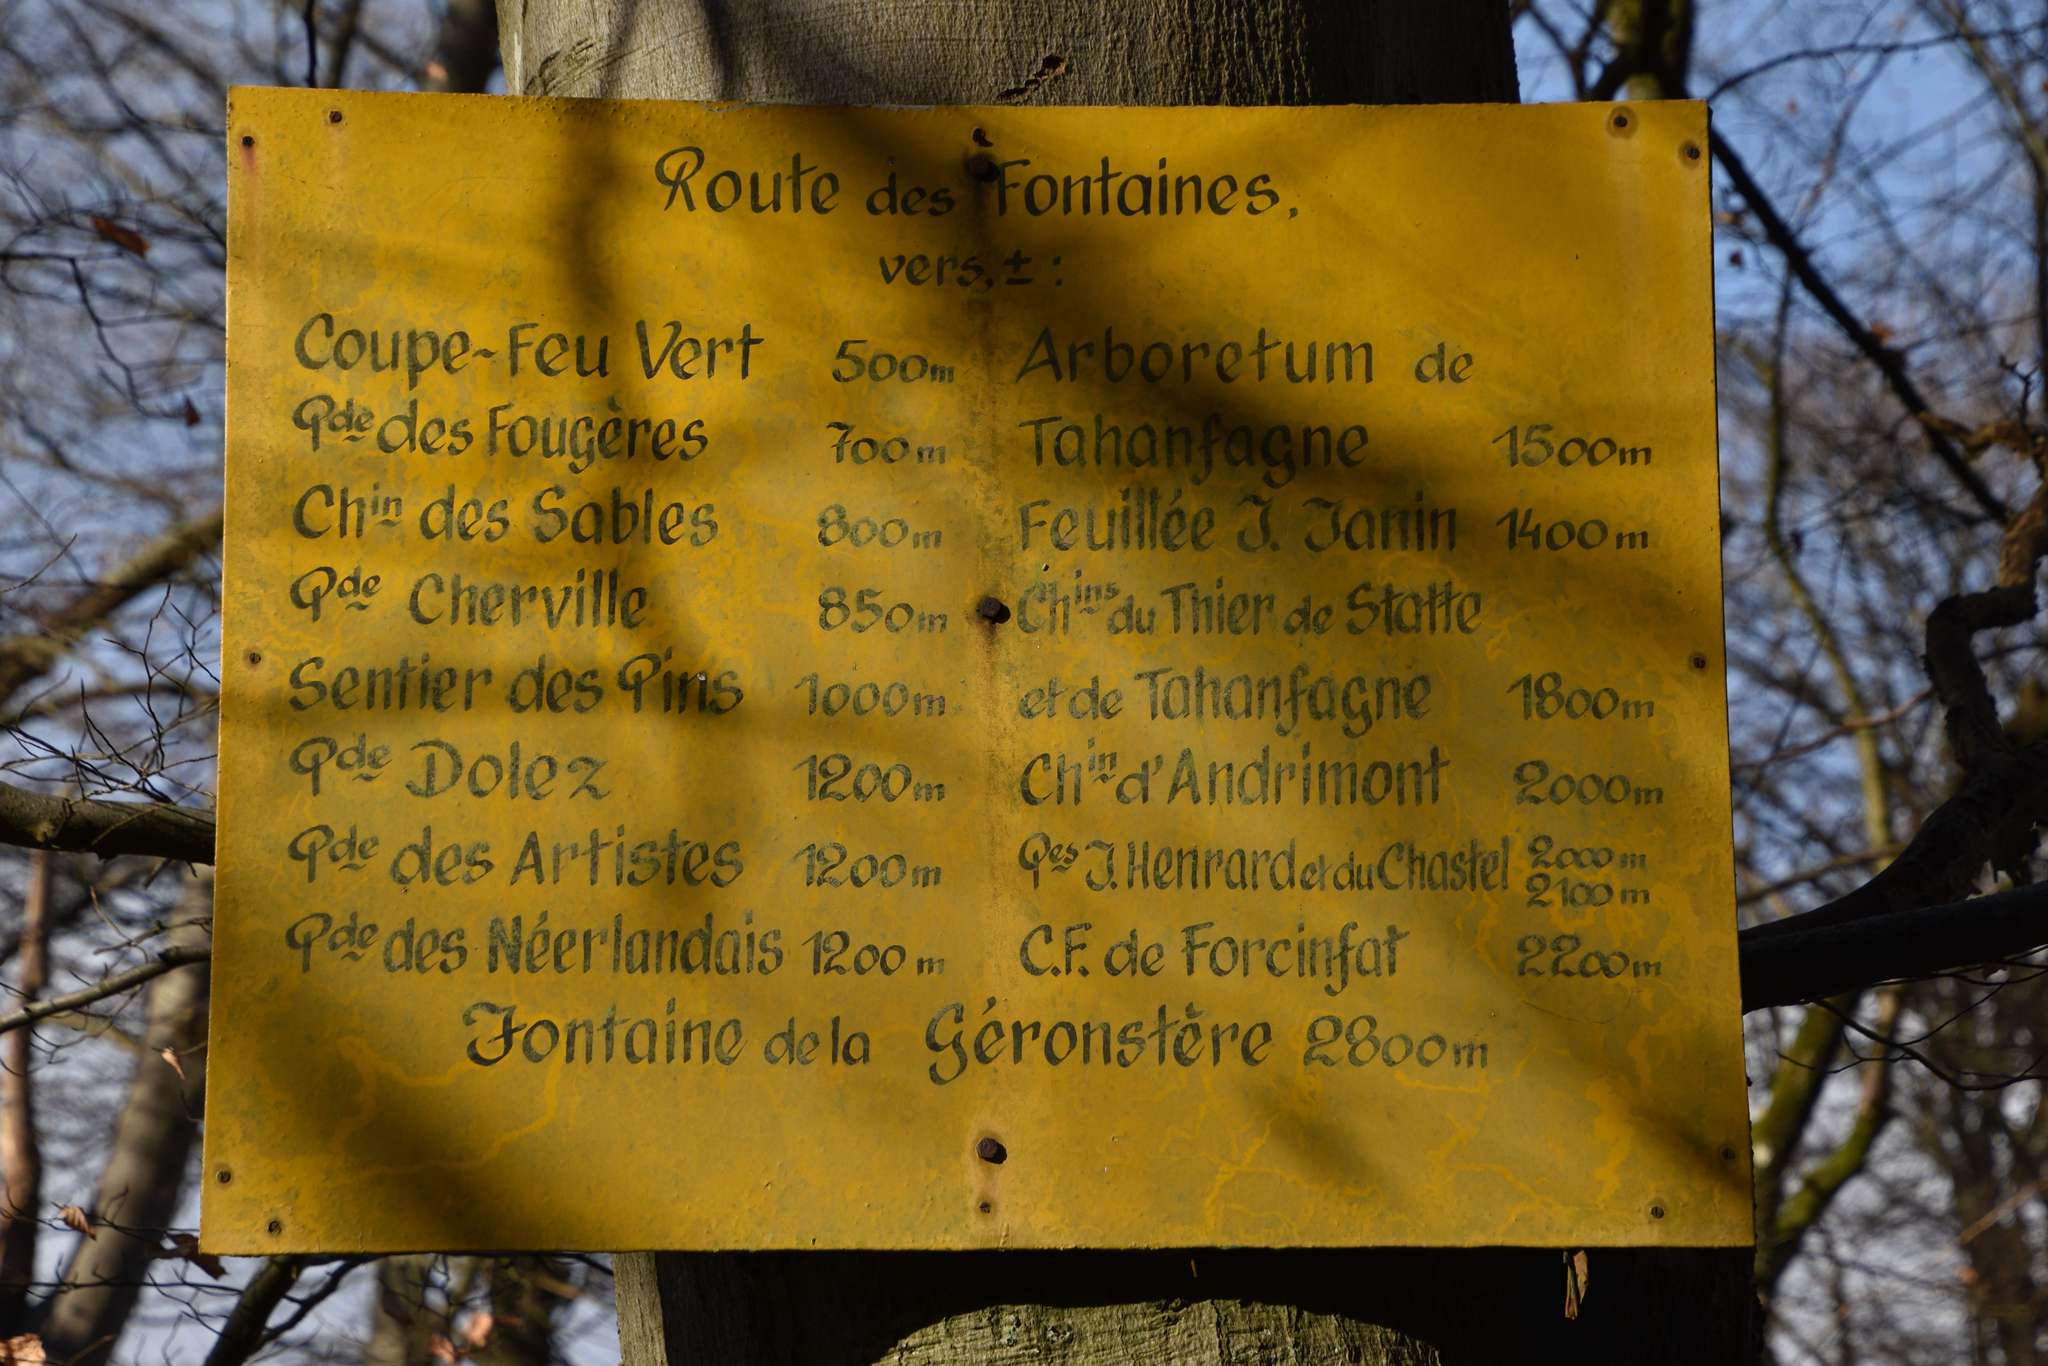 Route des Fontaines,
vers, ± :
Coupe-Feu Vert 500m
Pde des Fougères 700m
Chin des Sables 800m
Pde Cherville 850m
Sentier des Pins 1000m
Pde Dolez 1200m
Pde des Artistes 1200m
Pde des Néerlandais 1200m
Arboretum de
Tahanfagne 1500m
Feuillée J. Janin 1400m
Chins du Thier de Statte
et de Tahanfagne 1800m
Chin d'Andrimont 2000m
Pes J. Henrard et du Chastel 2000m
2100m
C.F. de Forcinfat 2200m
Fontaine de la Géronstère 2800m